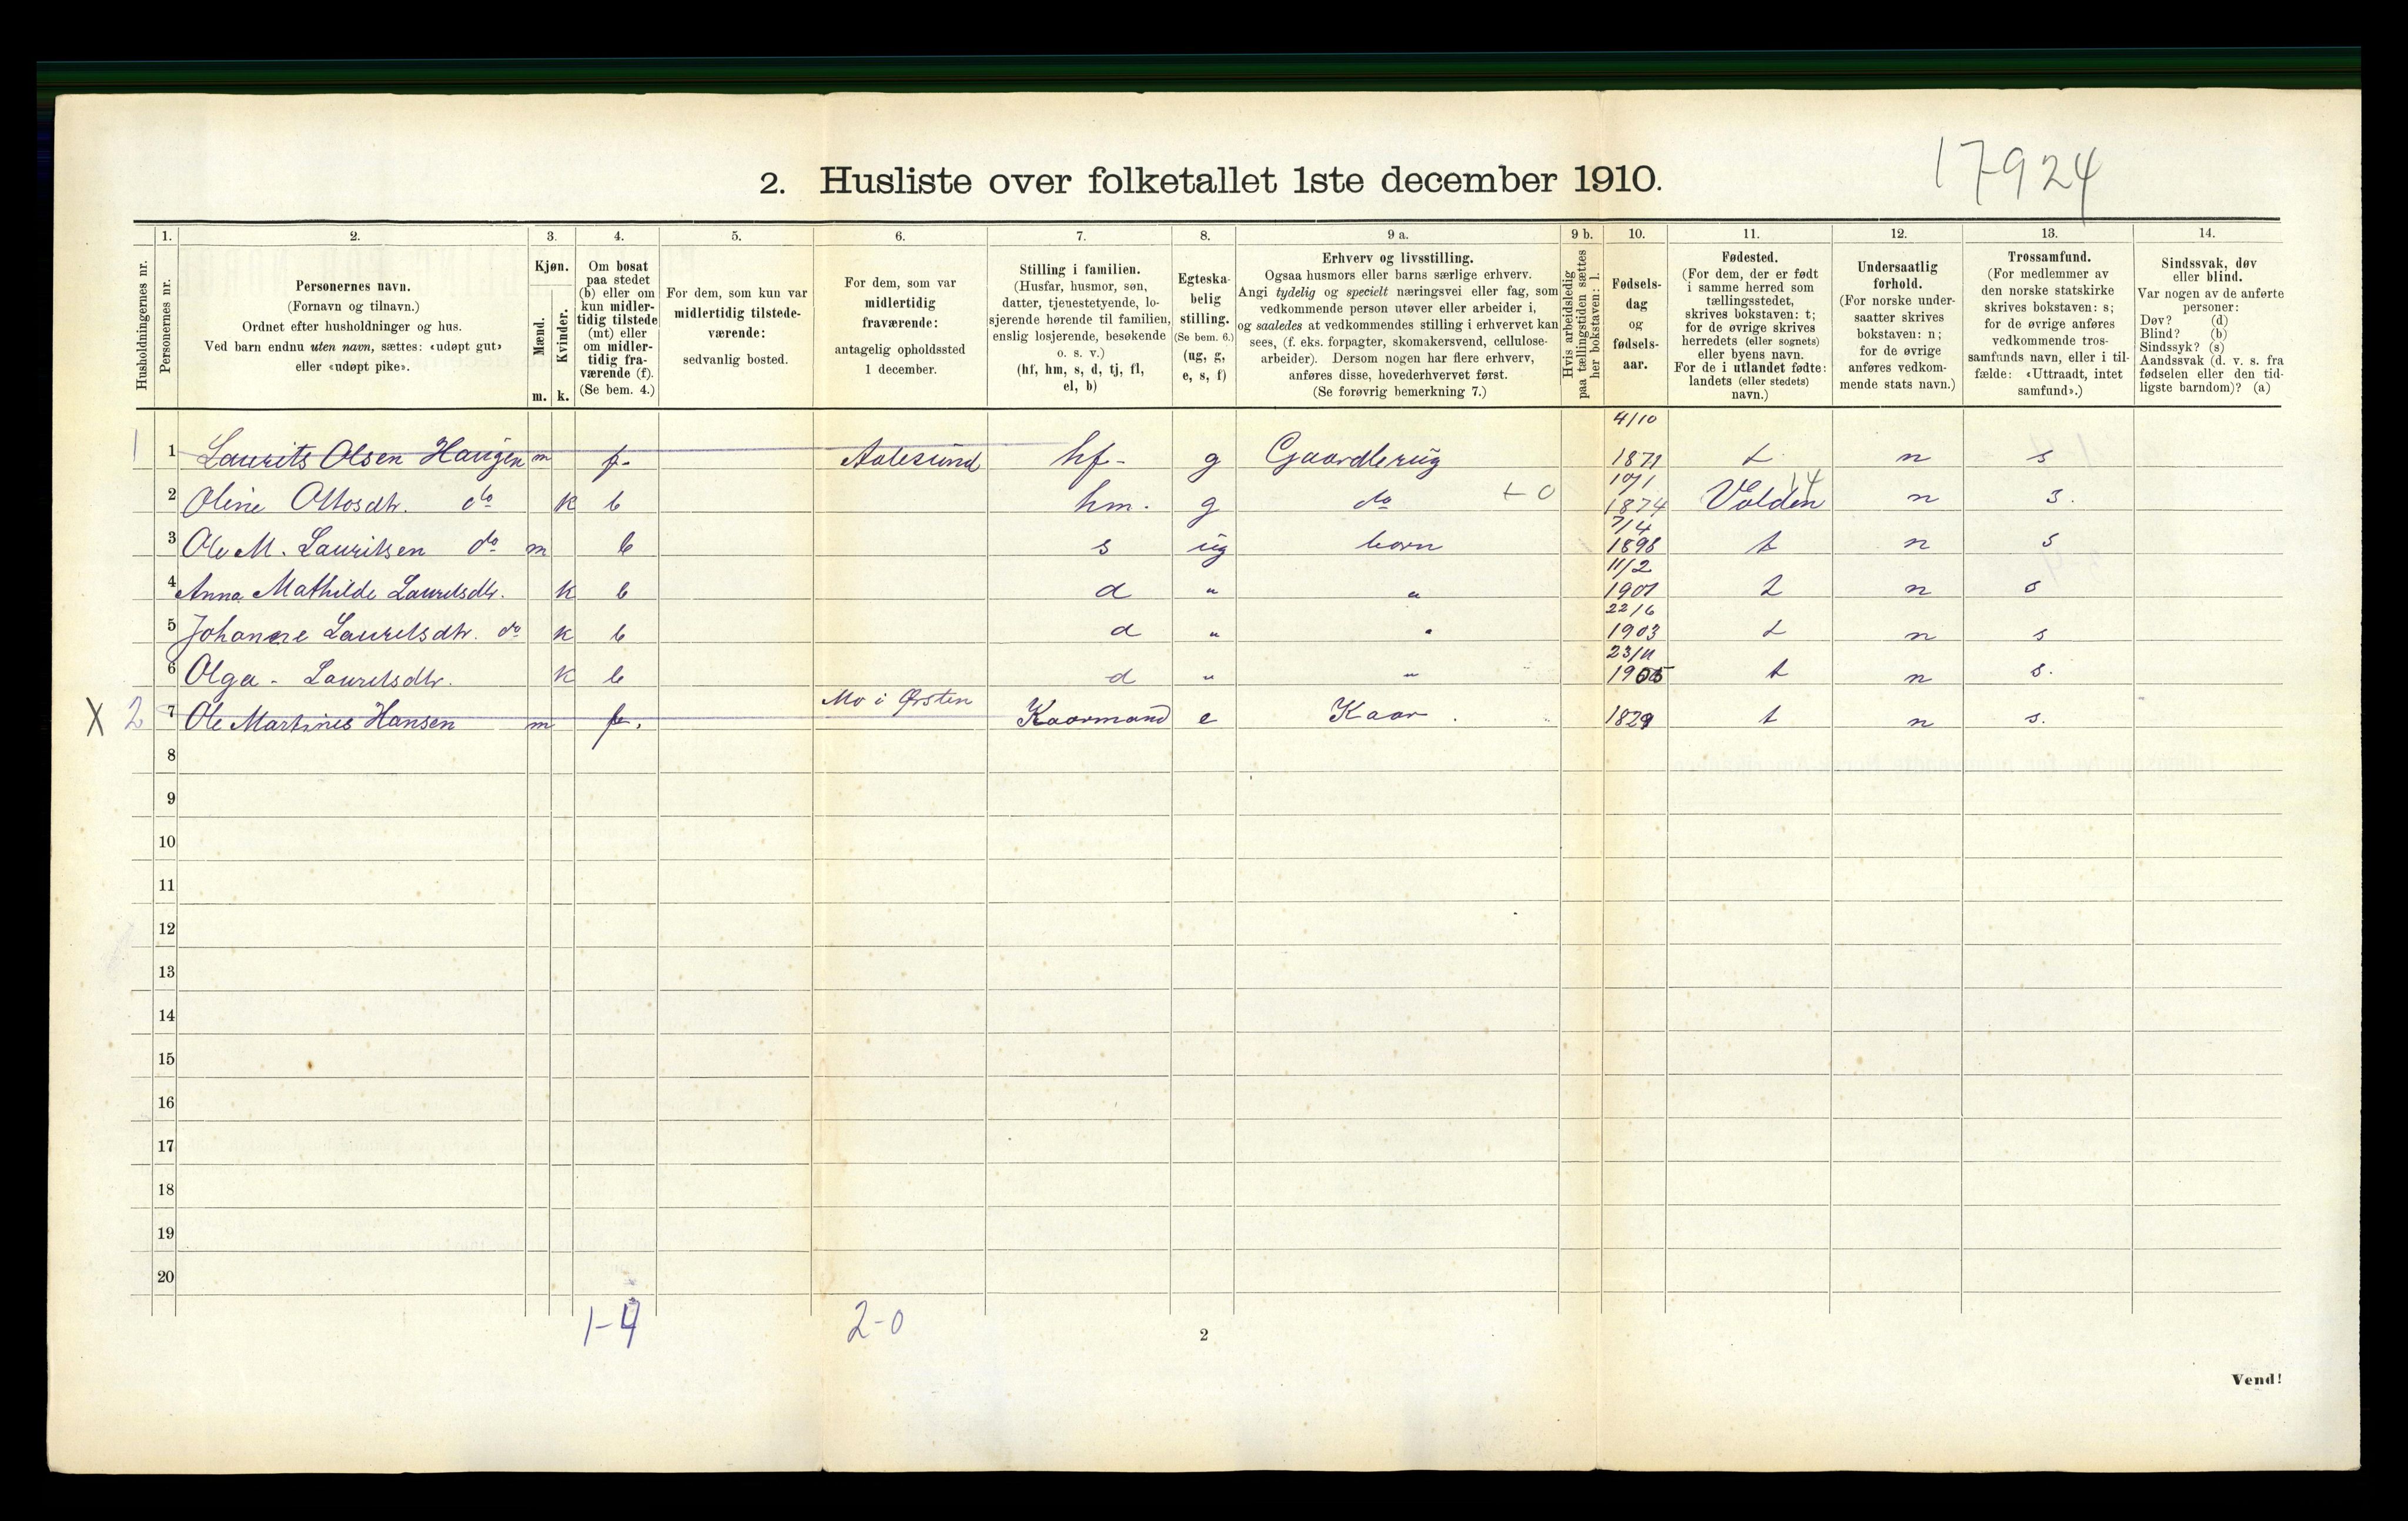 17924
2. Husliste over folketallet 1ste december 1910.
1. 2. 3. 4. 5. 6. 7. 8. 9 a. 9 b. 10. 11. 12. 13. 14.
Husholdningernes nr.
Personernes nr.
Personernes navn.
(Fornavn og tilnavn.)
Ordnet efter husholdninger og hus.
Ved barn endnu uten navn, sættes: «udøpt gut»
eller «udøpt pike».
Kjøn.
Mænd.
Kvinder.
m. k.
Om bosat
paa stedet
(b) eller om
kun midler-
tidig tilstede
(mt) eller
om midler-
tidig fra-
værende (f).
(Se bem. 4.)
For dem, som kun var
midlertidig tilstede-
værende:
sedvanlig bosted.
For dem, som var
midlertidig
fraværende:
antagelig opholdssted
1 december.
Stilling i familien.
(Husfar, husmor, søn,
datter, tjenestetyende, lo-
sjerende hørende til familien,
enslig losjerende, besøkende
o. s. v.)
(hf, hm, s, d, tj, fl,
el, b)
Egteska-
belig
stilling.
(Se bem. 6.)
(ug, g,
e, s, f)
Erhverv og livsstilling.
Ogsaa husmors eller barns særlige erhverv.
Angi tydelig og specielt næringsvei eller fag, som
vedkommende person utøver eller arbeider i,
og saaledes at vedkommendes stilling i erhvervet kan
sees, (f. eks. forpagter, skomakersvend, cellulose-
arbeider). Dersom nogen har flere erhverv,
anføres disse, hovederhvervet først.
(Se forøvrig bemerkning 7.)
Hvis arbeidsledig
paa tællingstiden sættes
her bokstaven: l.
Fødsels-
dag
og
fødsels-
aar.
Fødested.
(For dem, der er født
i samme herred som
tællingsstedet,
skrives bokstaven: t;
for de øvrige skrives
herredets (eller sognets)
eller byens navn.
For de i utlandet fødte:
landets (eller stedets)
navn.)
Undersaatlig
forhold.
(For norske under-
saatter skrives
bokstaven: n;
for de øvrige
anføres vedkom-
mende stats navn.)
Trossamfund.
(For medlemmer av
den norske statskirke
skrives bokstaven: s;
for de øvrige anføres
vedkommende tros-
samfunds navn, eller i til-
fælde: «Uttraadt, intet
samfund».)
Sindssvak, døv
eller blind.
Var nogen av de anførte
personer:
Døv? (d)
Blind? (b)
Sindssyk? (s)
Aandssvak (d. v. s. fra
fødselen eller den tid-
ligste barndom)? (a)
4/10
1 1 Laurits Olsen Haugen m f. Aalesund hf- g Gaardbrug 1871 t n s
10/1 14
2 Oline Ottosdtr. do k b hm. g do +0 1874 Volden n s.
7/4
3 Ole M. Lauritsen do m b s ug barn 1898 t n s
11/2
4 Anna Mathilde Lauritsdtr. k b d " " 1901 t n s
22/6
5 Johanne Lauritsdtr. do k b d " " 1903 t n s
23/11
6 Olga - Lauritsdtr. k b d " " 1905 t n s.
X 2 7 Ole Martinus Hansen m f. Mo i Ørsten Kaarmand e Kaar. 1829 t n s.
8
9
10
11
12
13
14
15
16
17
18
19
20
1-4 2-0
2
Vend!